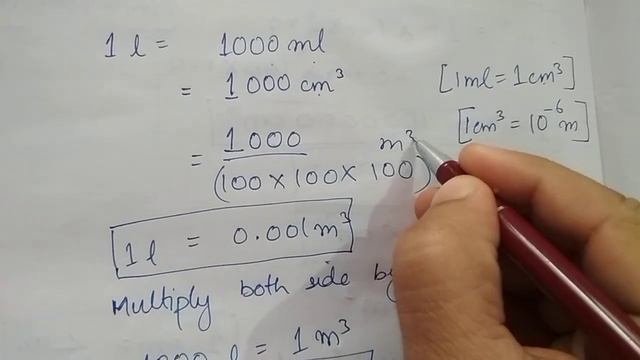 1 l = 1000 ml
= 1000 cm³ [1ml = 1cm³]
[1cm³ = 10⁻⁶ m]
= 1000 / (100 × 100 × 100) m³
1 l = 0.001 m³
Multiply both side by
1000 l = 1 m³